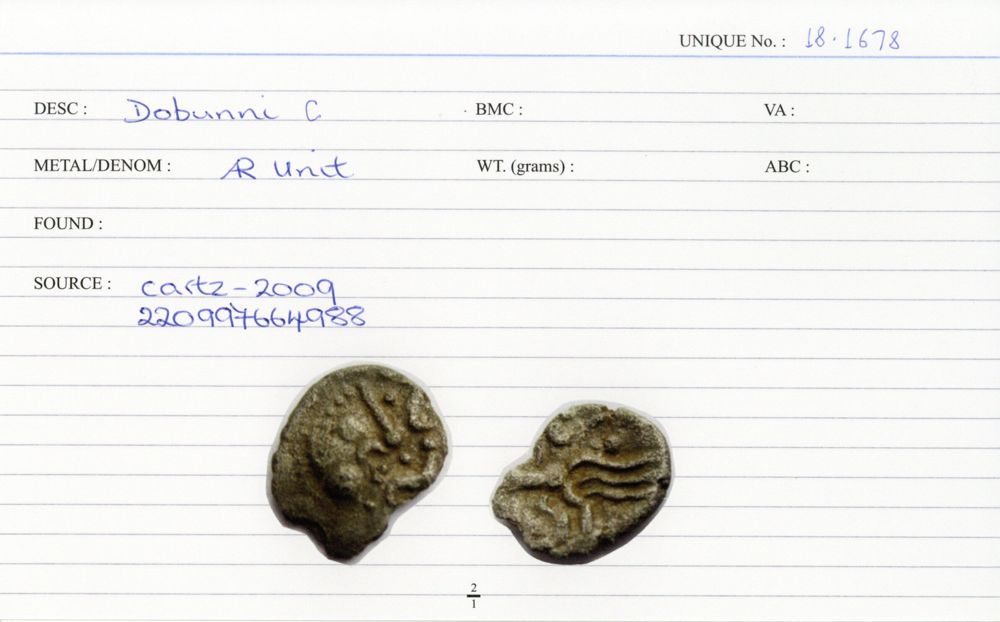 UNIQUE No. : 18.1678
DESC : Dobunni C BMC : VA :
METAL/DENOM : AR Unit WT. (grams) : ABC :
FOUND :
SOURCE : cartz-2009
220997664988
2
1